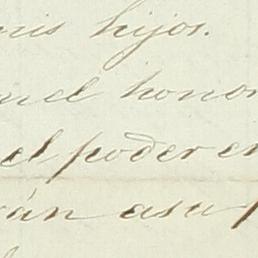 mis hijos.
en el honor
el poder en
rán asu p